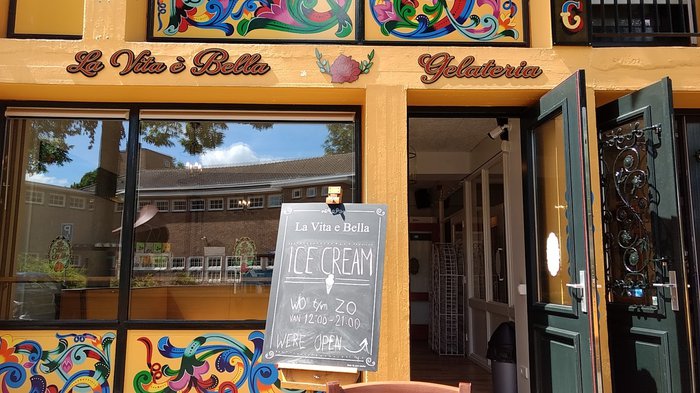 La Vita è Bella
Gelateria
G
La Vita e Bella
ICE CREAM
WO t/m ZO
VAN 12:00-21:00
WE'RE OPEN